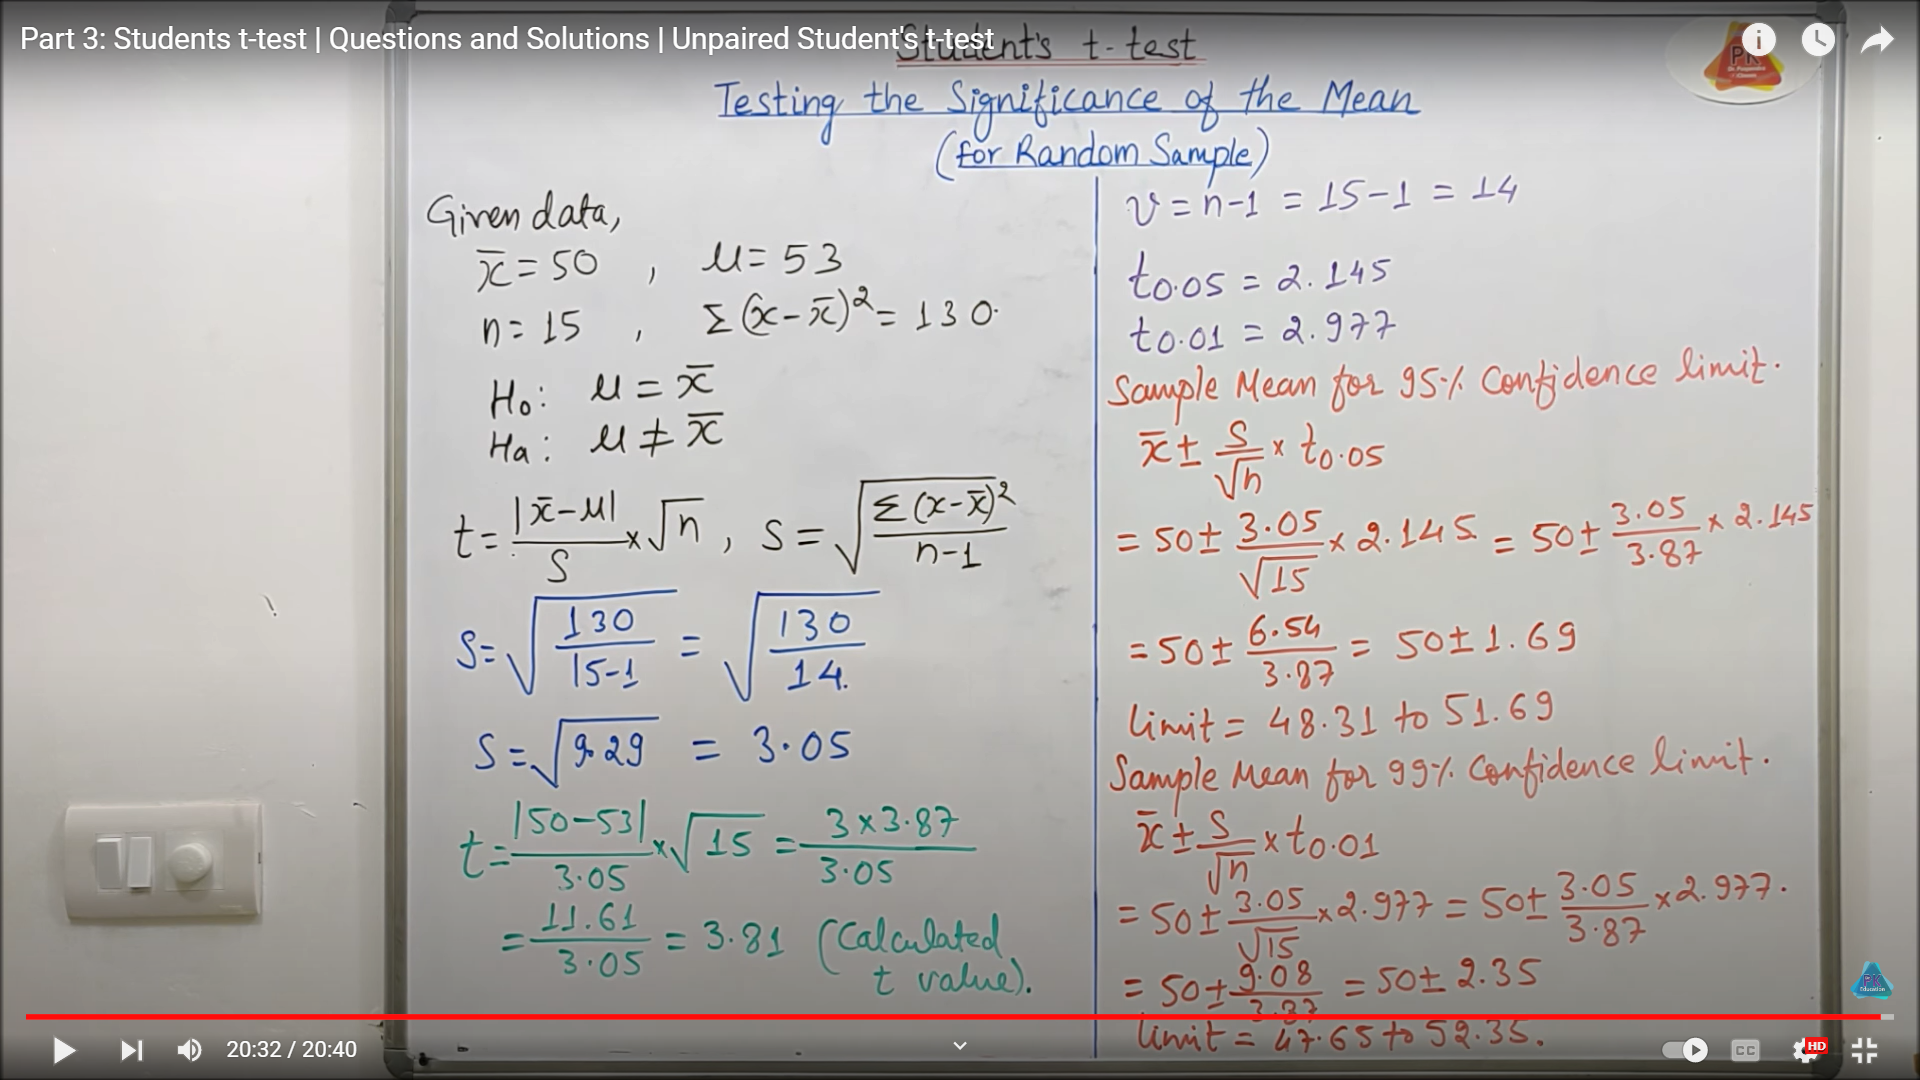 Part 3: Students t-test | Questions and Solutions | Unpaired Student's t-test
Student's t-test
Testing the Significance of the Mean
(for Random Sample)
Given data,
x̄ = 50 , μ = 53
n = 15 , Σ(x-x̄)² = 130.
H₀: μ = x̄
Ha: μ ≠ x̄
t = |x̄-μ|/S × √n , S = √(Σ(x-x̄)²/n-1)
S = √(130/15-1) = √(130/14.)
S = √9.29 = 3.05
t = |50-53|/3.05 × √15 = 3×3.87/3.05
= 11.61/3.05 = 3.81 (Calculated
t value).
ν = n-1 = 15-1 = 14
t0.05 = 2.145
t0.01 = 2.977
Sample Mean for 95% Confidence limit.
x̄ ± S/√n × t0.05
= 50 ± 3.05/√15 × 2.145 = 50 ± 3.05/3.87 × 2.145
= 50 ± 6.54/3.87 = 50 ± 1.69
limit = 48.31 to 51.69
Sample Mean for 99% Confidence limit.
x̄ ± S/√n × t0.01
= 50 ± 3.05/√15 × 2.977 = 50 ± 3.05/3.87 × 2.977.
= 50 ± 9.08/3.87 = 50 ± 2.35
limit = 47.65 to 52.35.
PK
PK
Education
20:32 / 20:40
CC
HD